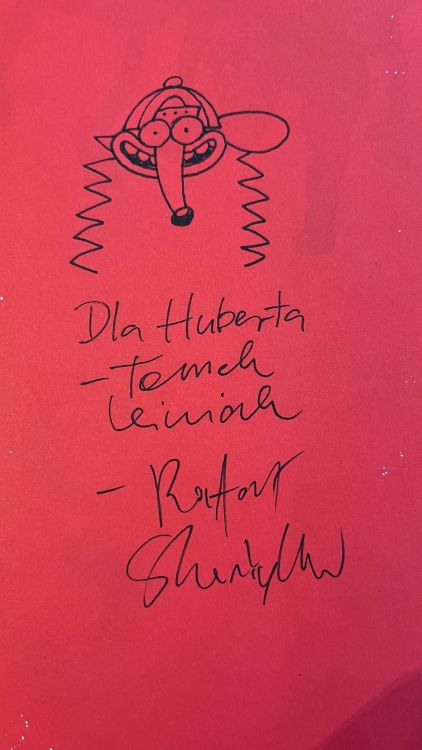 Dla Huberta
- Tomek
Leśniak
- Rafał
Skarżycki